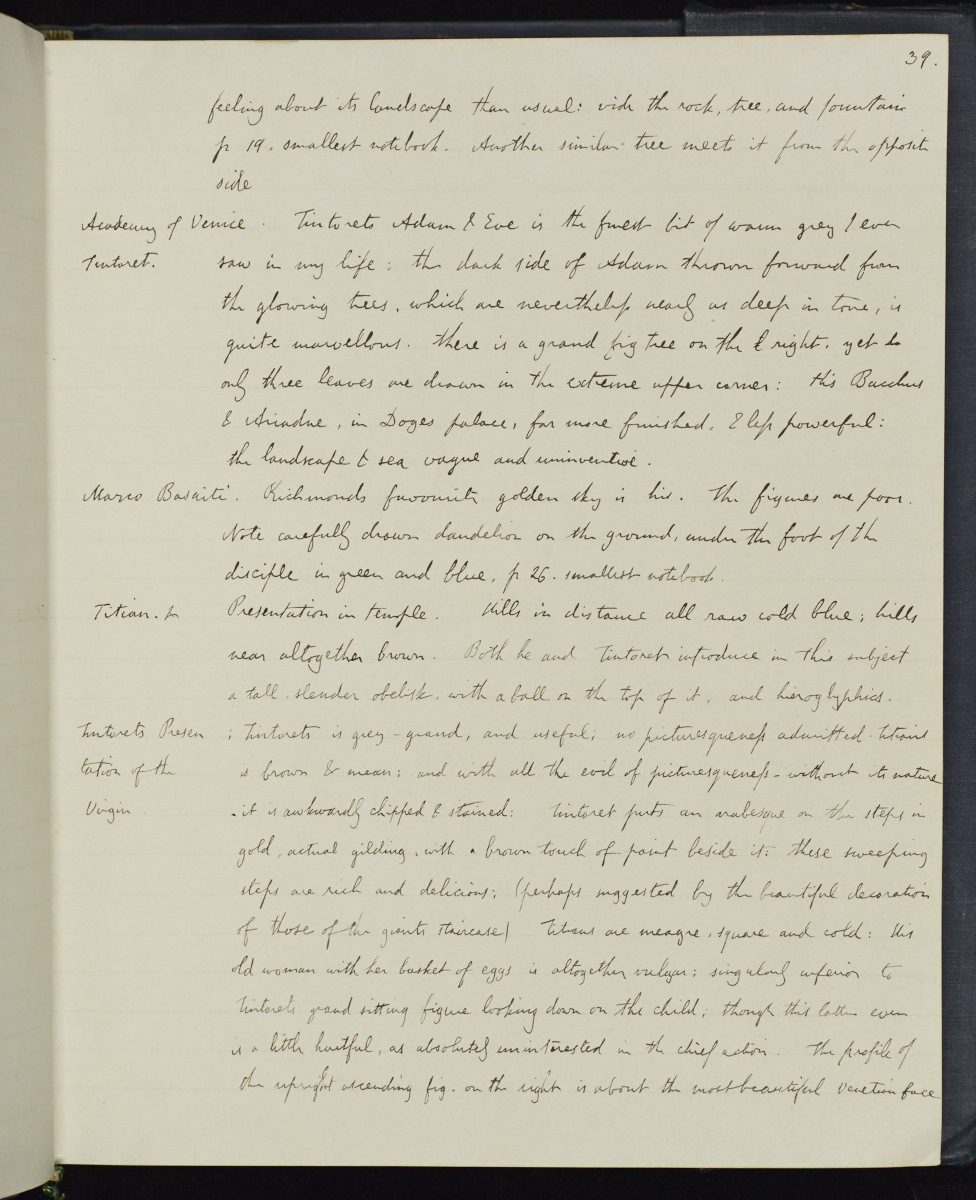 39.
feeling about its landscape than usual: vide the rock, tree, and fountain
p 19. smallest notebook. Another similar tree meets it from the opposite
side
Academy of Venice. Tintorets Adam & Eve is the finest bit of warm grey I ever
Tintoret. saw in my life: the dark side of Adam thrown forward from
the glowing trees, which are nevertheless nearly as deep in tone, is
quite marvellous. There is a grand fig tree on the right, yet
only three leaves are drawn in the extreme upper corner: His Bacchus
& Ariadne, in Doges palace, far more finished, & less powerful:
the landscape & sea vague and uninventive.
Marco Basaiti. Richmonds favourite golden sky is his. The figures are poor.
Note carefully drawn dandelion on the ground, under the foot of the
disciple in green and blue, p 26. smallest notebook.
Titian. Presentation in temple. Hills in distance all raw cold blue; hills
near altogether brown. Both he and Tintoret introduce in this subject
a tall, slender obelisk, with a ball on the top of it, and hieroglyphics.
Tintorets Presen : Tintorets is grey - grand, and useful; no picturesqueness admitted. Titians
tation of the is brown & mean; and with all the evil of picturesqueness - without its nature
Virgin . it is awkwardly chipped & stained: Tintoret puts an arabesque on the steps in
gold, actual gilding, with a brown touch of paint beside it: these sweeping
steps are rich and delicious; (perhaps suggested by the beautiful decoration
of those of the giants staircase) Titians are meagre, square and cold: His
old woman with her basket of eggs is altogether vulgar; singularly inferior to
Tintorets grand sitting figure looking down on the child; though this latter even
is a little hurtful, as absolutely uninterested in the chief action. The profile of
the upright ascending fig. on the right is about the most beautiful Venetian face